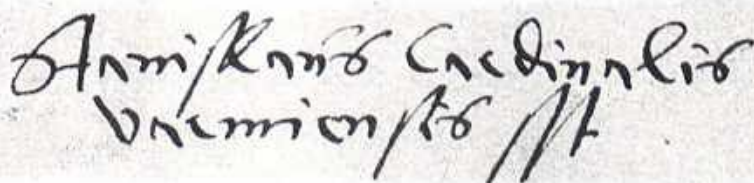 Stanislaus Cardinalis
varmiensis sst